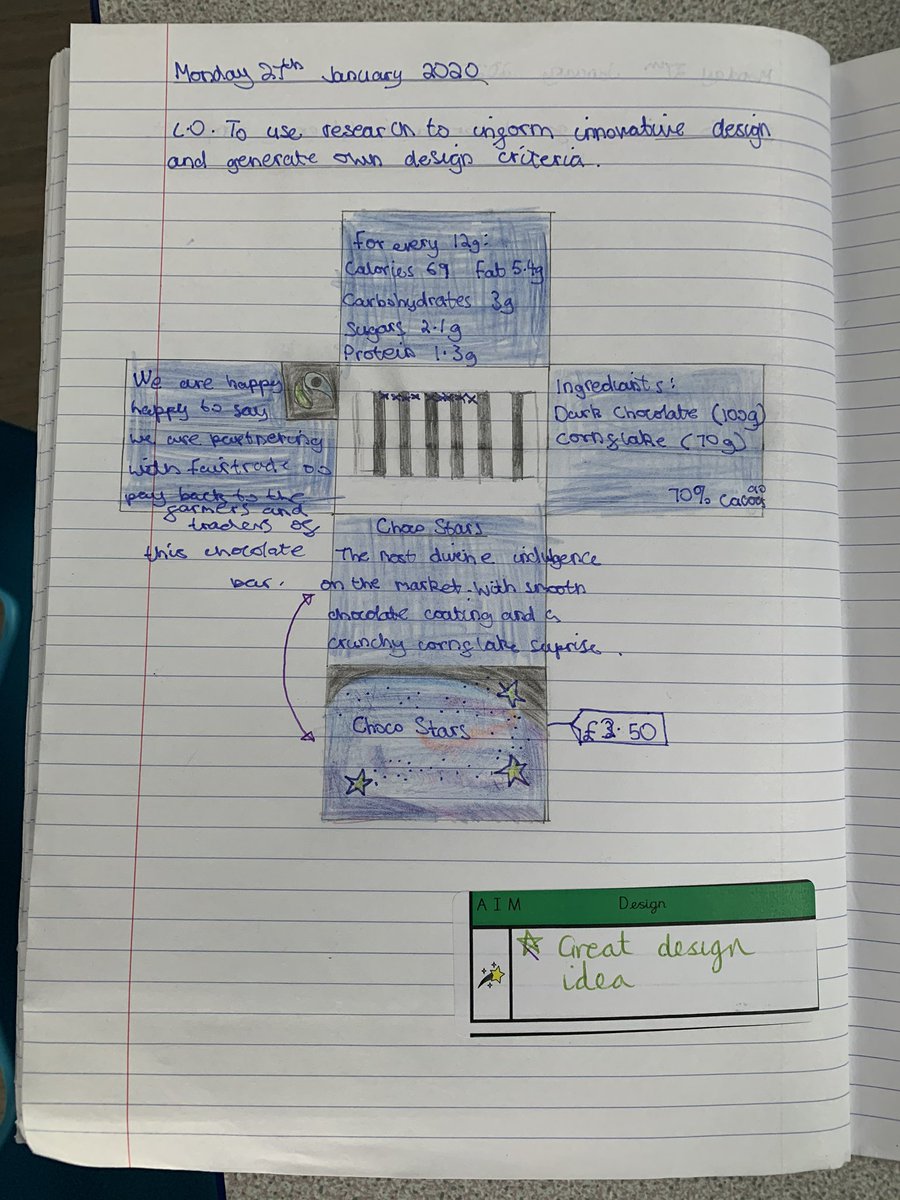 Monday 27th January 2020
L.O. To use research to inform innovative design
and generate own design criteria.
For every 12g:
Calories 69 Fat 5.4g
Carbohydrates 3g
Sugars 2.1g
Protein 1.3g
We are happy
happy to say
we are partnering
with fairtrade to
pay back to the
farmers and
traders of
this chocolate
bar.
Ingrediants:
Dark Chocolate (100g)
Cornflake (70g)
70% cacao
Choco Stars
The most divine indulgence
on the market. With smooth
chocolate coating and a
crunchy cornflake suprise.
Choco Stars
£3.50
AIM Design
Great design
idea